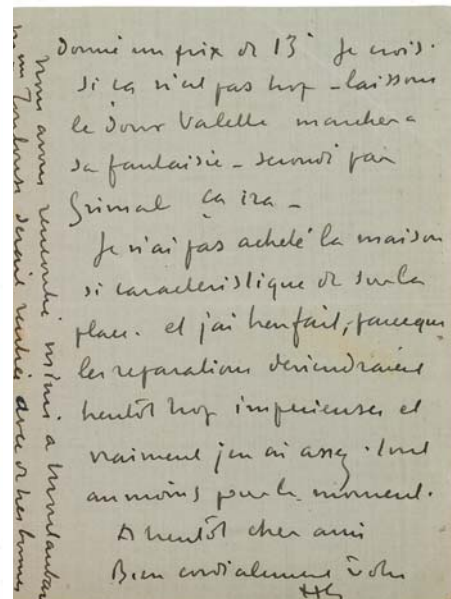 Donné un prix de 13° Je crois.
Si ca n'est pas trop – laissons
le Valette marcher a
sa fantaisie – secondé par
Grimal ca ira –
Je n'ai pas acheté la maison
si caracteristique de sur la
place. et j'ai bien fait, parceque
les reparations deviendraient
bientôt trop imperieuses et
vraiment j'en ai assez. tout
au moins pour le moment.
A bientôt cher ami
Bien cordialement votre
nous avons rencontré a Montauban
Toulouse serait avec de tres bonnes